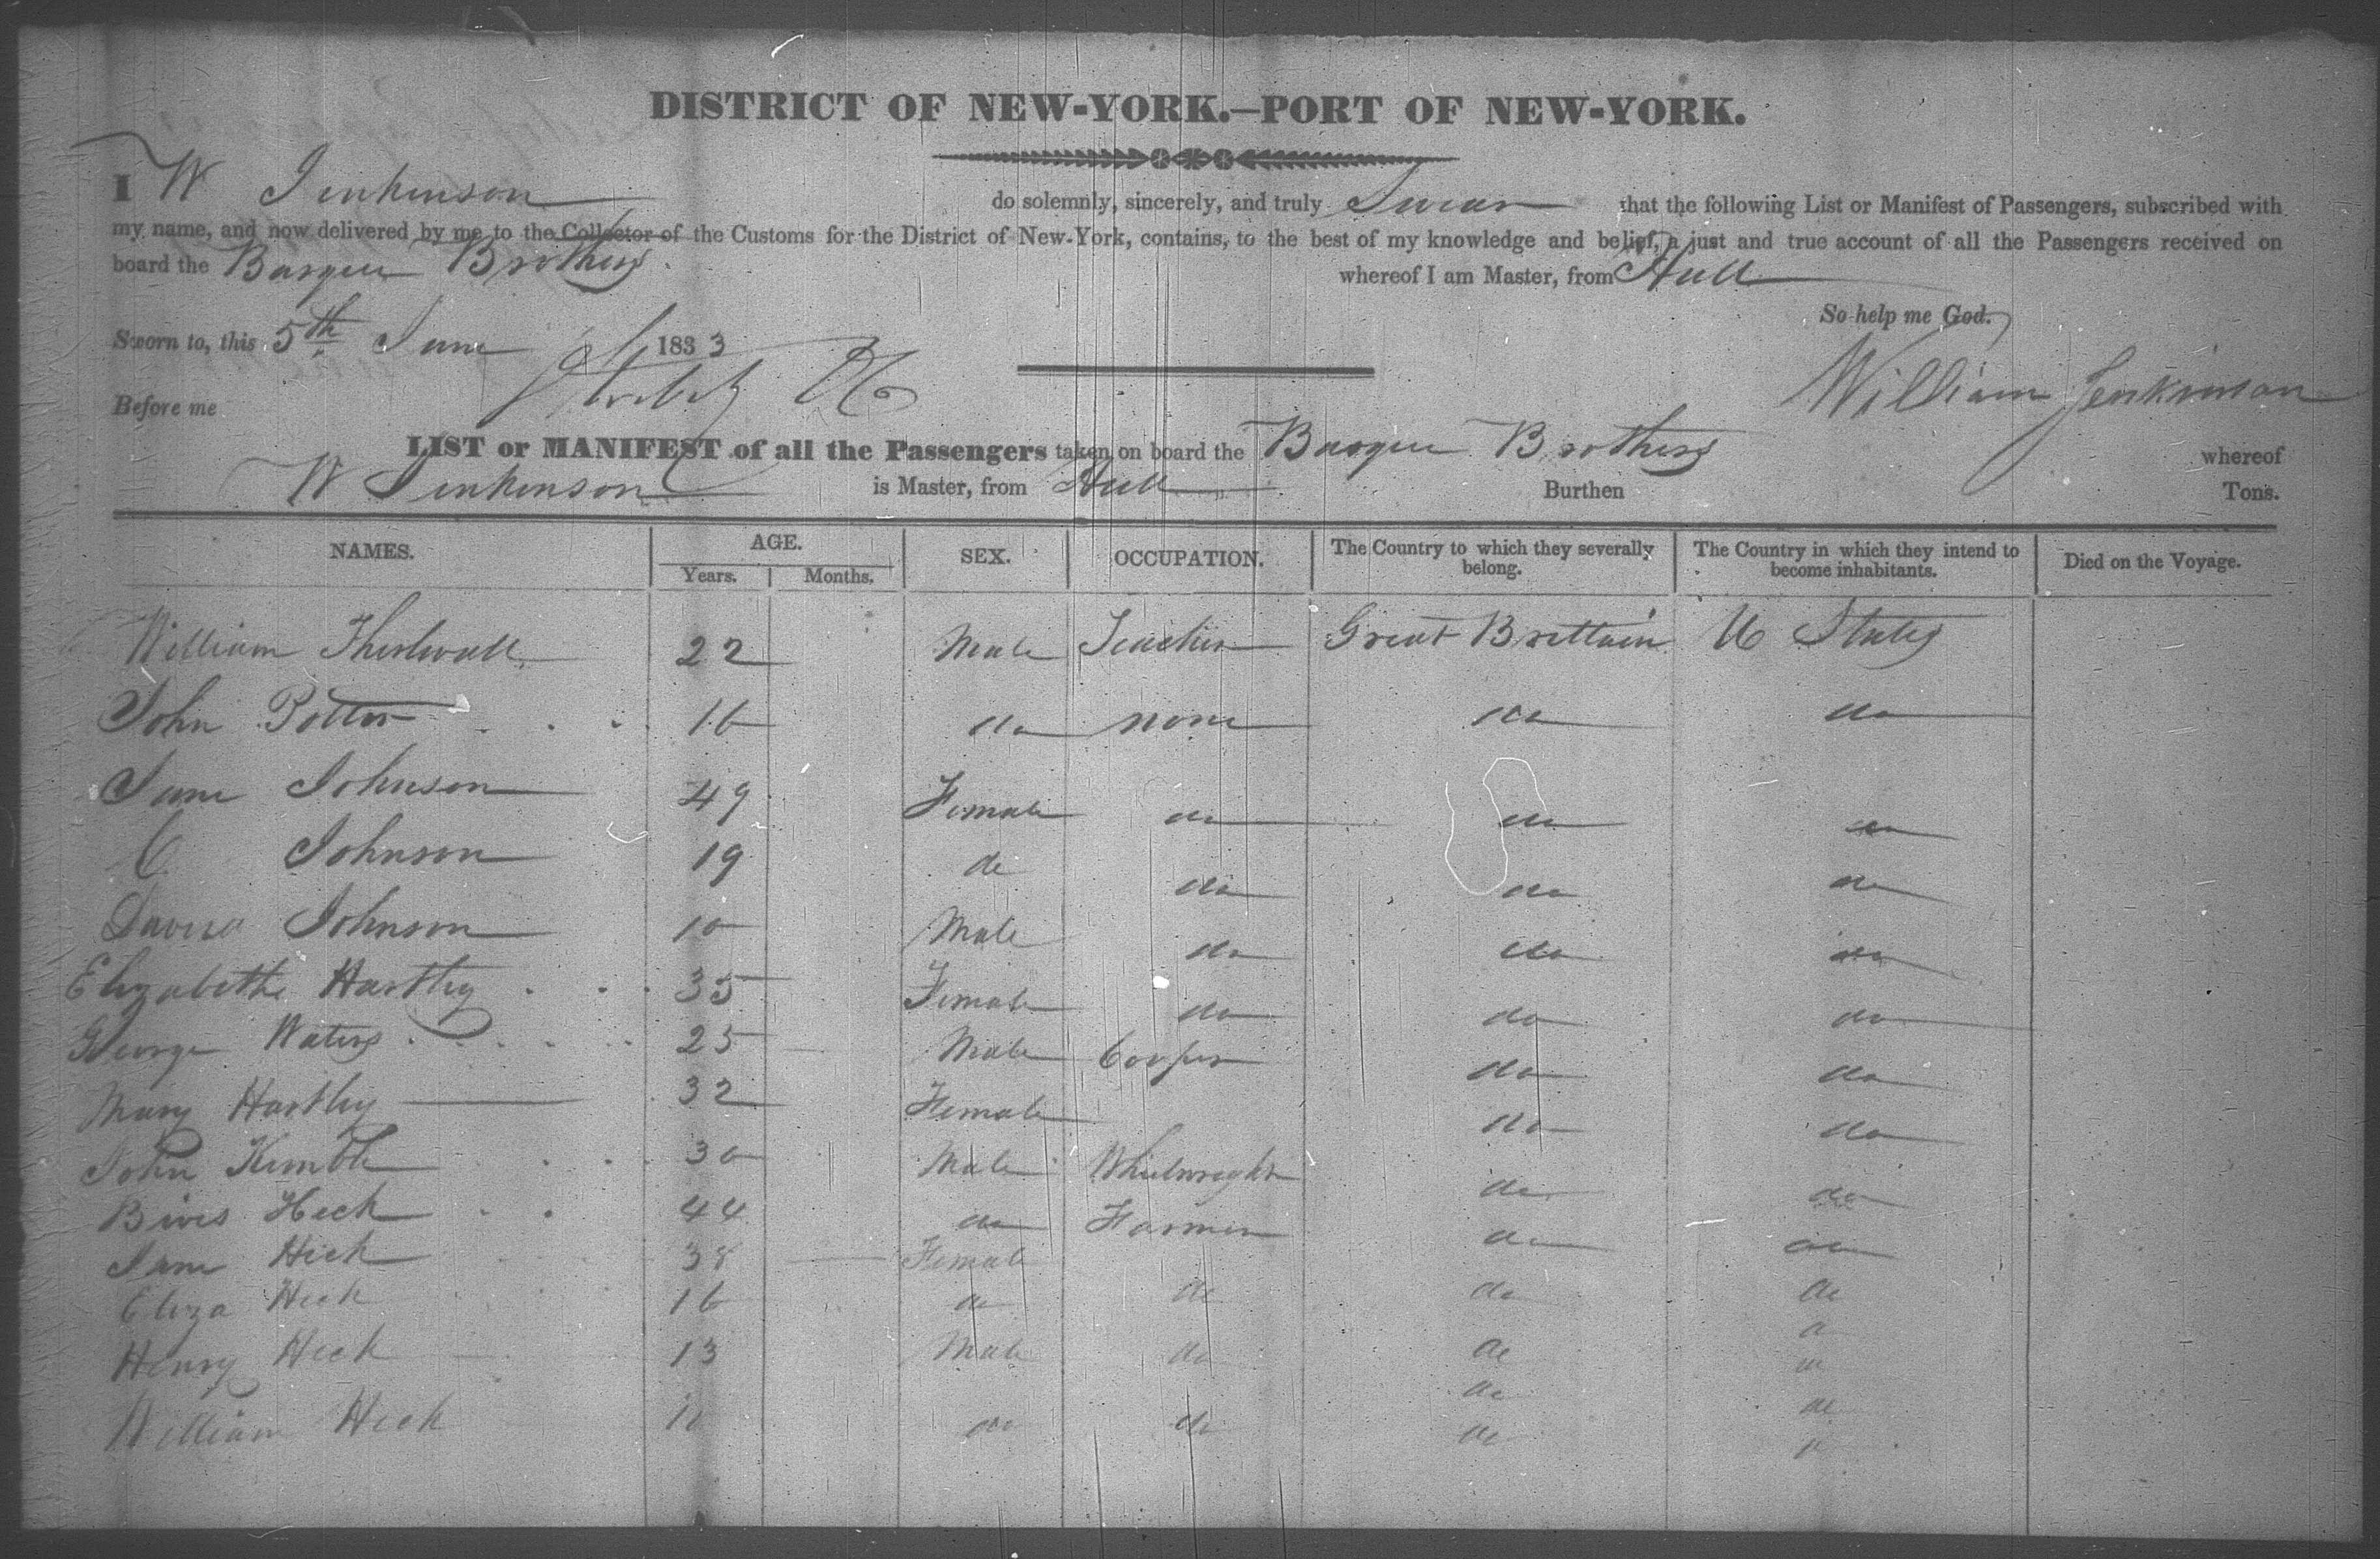 DISTRICT OF NEW-YORK.—PORT OF NEW-YORK.
I W Jenkinson do solemnly, sincerely, and truly Swear that the following List or Manifest of Passengers, subscribed with
my name, and now delivered by me to the Collector of the Customs for the District of New-York, contains, to the best of my knowledge and belief, a just and true account of all the Passengers received on
board the Barque Brothers whereof I am Master, from Hull
So help me God.
Sworn to, this 5th June 1833
William Jenkinson
Before me
LIST or MANIFEST of all the Passengers taken on board the Barque Brothers whereof
W Jenkinson is Master, from Hull Burthen Tons.
NAMES. AGE. SEX. OCCUPATION. The Country to which they severally belong. The Country in which they intend to become inhabitants. Died on the Voyage.
Years. Months.
William Thirlwall 22 Male Teacher Great Brittain U States
John Potter 16 do none do do
Jane Johnson 49 Female do do do
C Johnson 19 do do do do
Johnson 10 Male do do do
Elizabethe Hartley 35 Female do do do
George Waters 25 Male Cooper do do
Mary Hartley 32 Female do do
John Kimble 30 Male Whelwright do do
Heck 44 do Farmer do do
Jane Hick 38 Female do do
Eliza Heck 16 do do do do
Henry Heck 13 Male do do do
William Heck do do do do